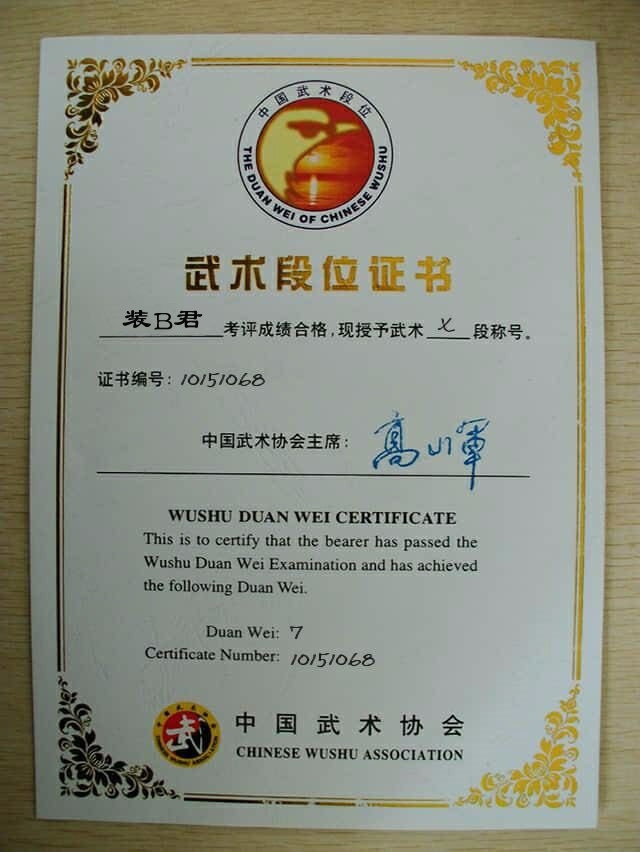 中国武术段位
THE DUAN WEI OF CHINESE WUSHU
武术段位证书
装B君 考评成绩合格，现授予武术 七 段称号。
证书编号：10151068
中国武术协会主席：
WUSHU DUAN WEI CERTIFICATE
This is to certify that the bearer has passed the
Wushu Duan Wei Examination and has achieved
the following Duan Wei.
Duan Wei: 7
Certificate Number: 10151068
武
CHINESE WUSHU ASSOCIATION
中国武术协会
CHINESE WUSHU ASSOCIATION